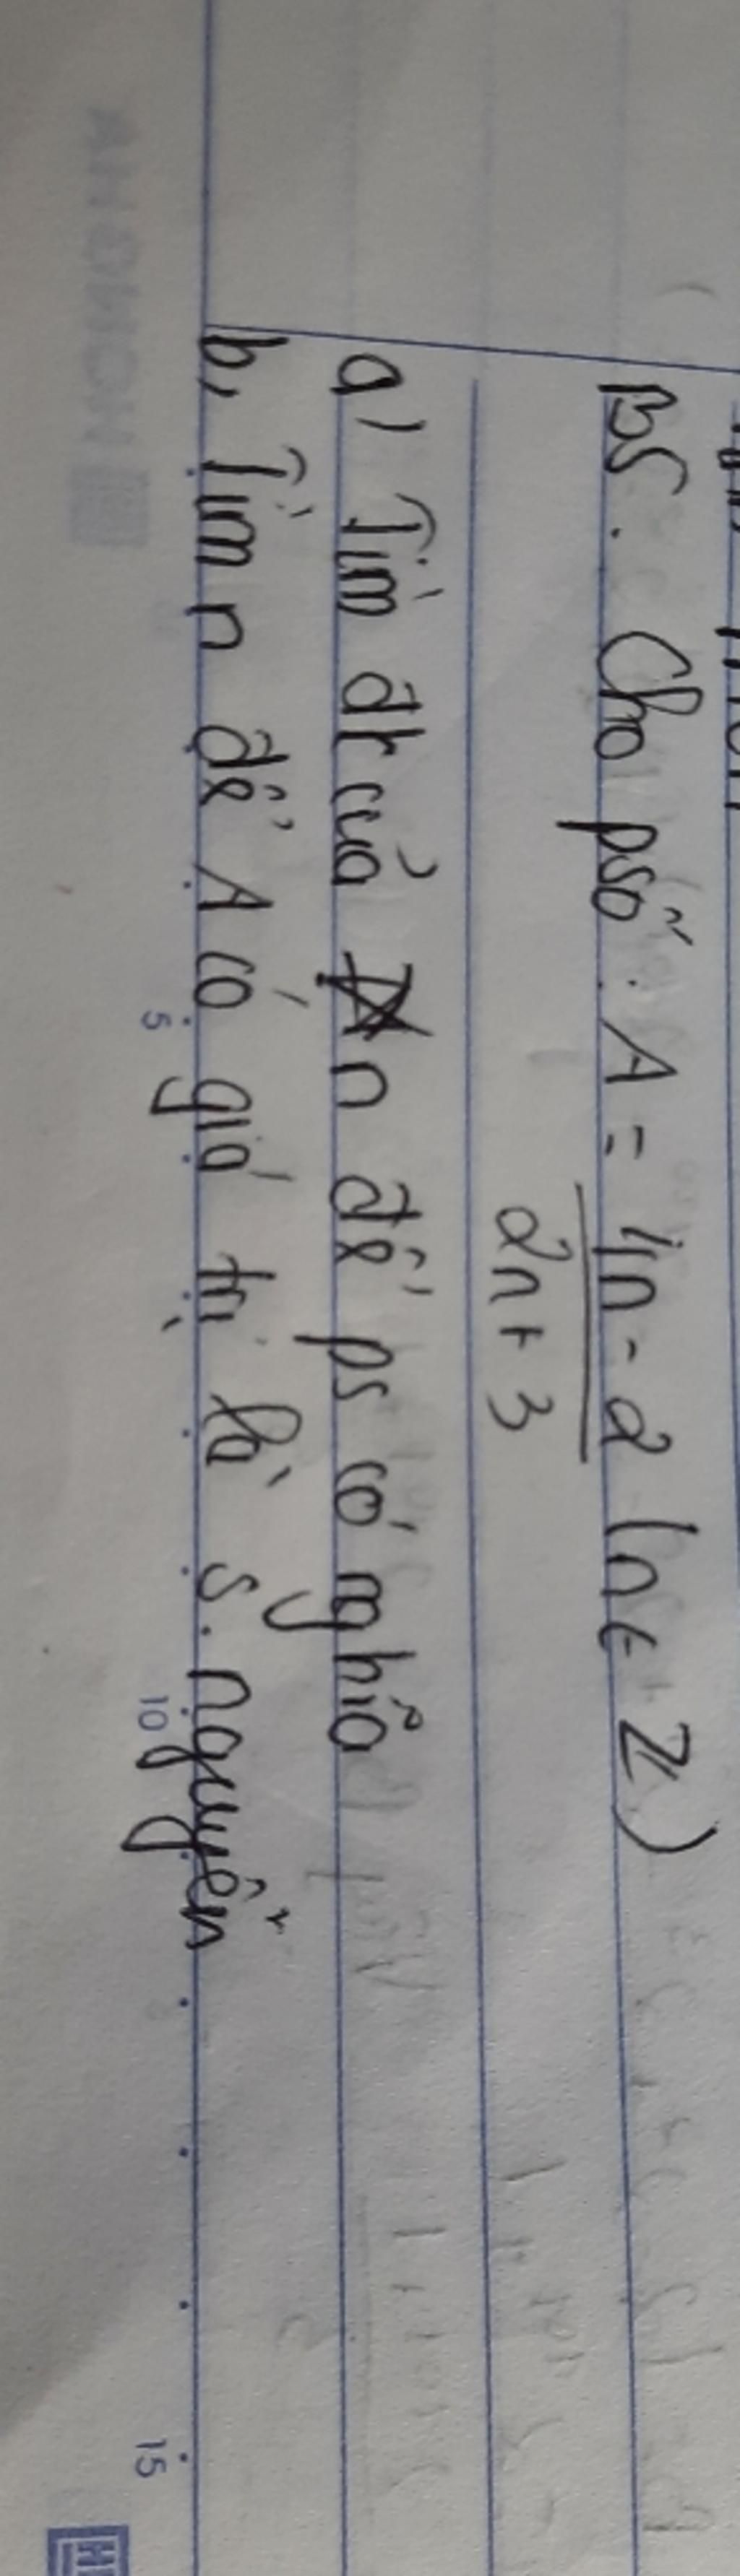 B5. Cho psố: A = 4n - 2 (n ∈ Z)
2n + 3
a) Tìm đk của n để ps có nghĩa
b, Tìm n để A có giá trị là s. nguyên
5
10
15